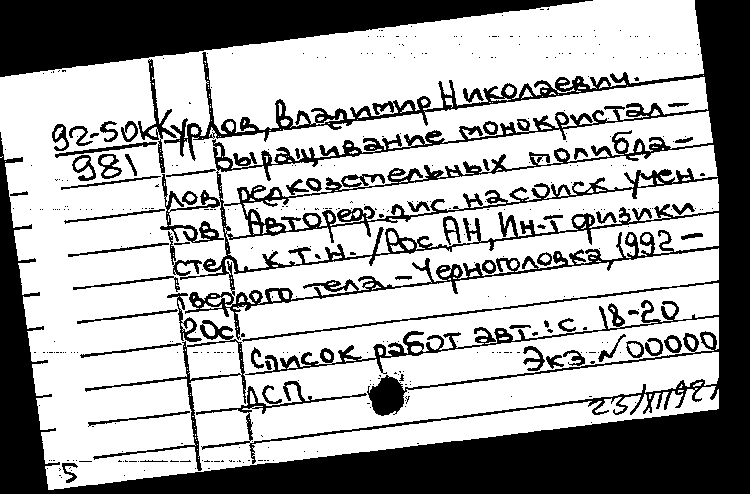 92-50к Курлов, Владимир Николаевич.
981 Выращивание монокристал-
лов редкоземельных молибда-
тов: Автореф. дис. на соиск. учен.
степ. к.т.н. /Рос. АН, Ин-т физики
твердого тела. - Черноголовка, 1992 -
20с.
Список работ авт.: с. 18-20.
Экз. № 00000
ДСП.
23/XII92г
5